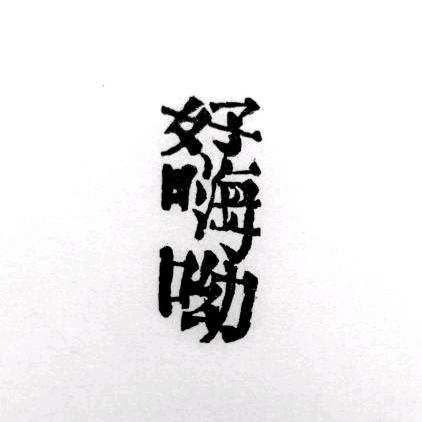 好嗨呦